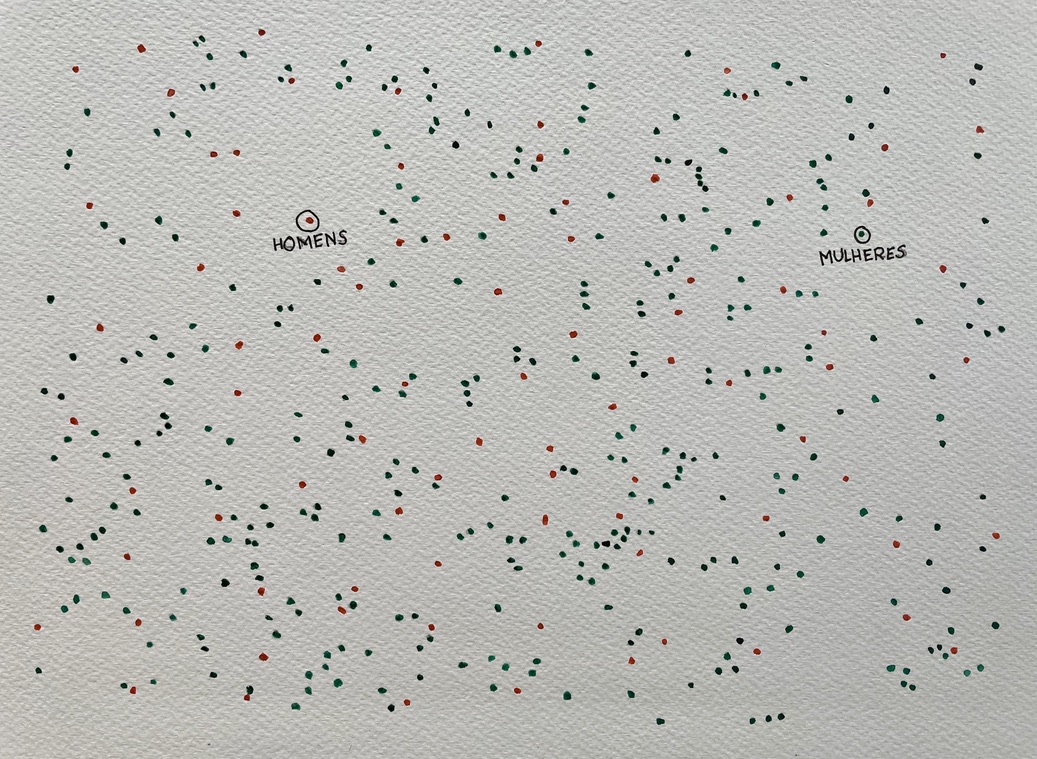 HOMENS
MULHERES